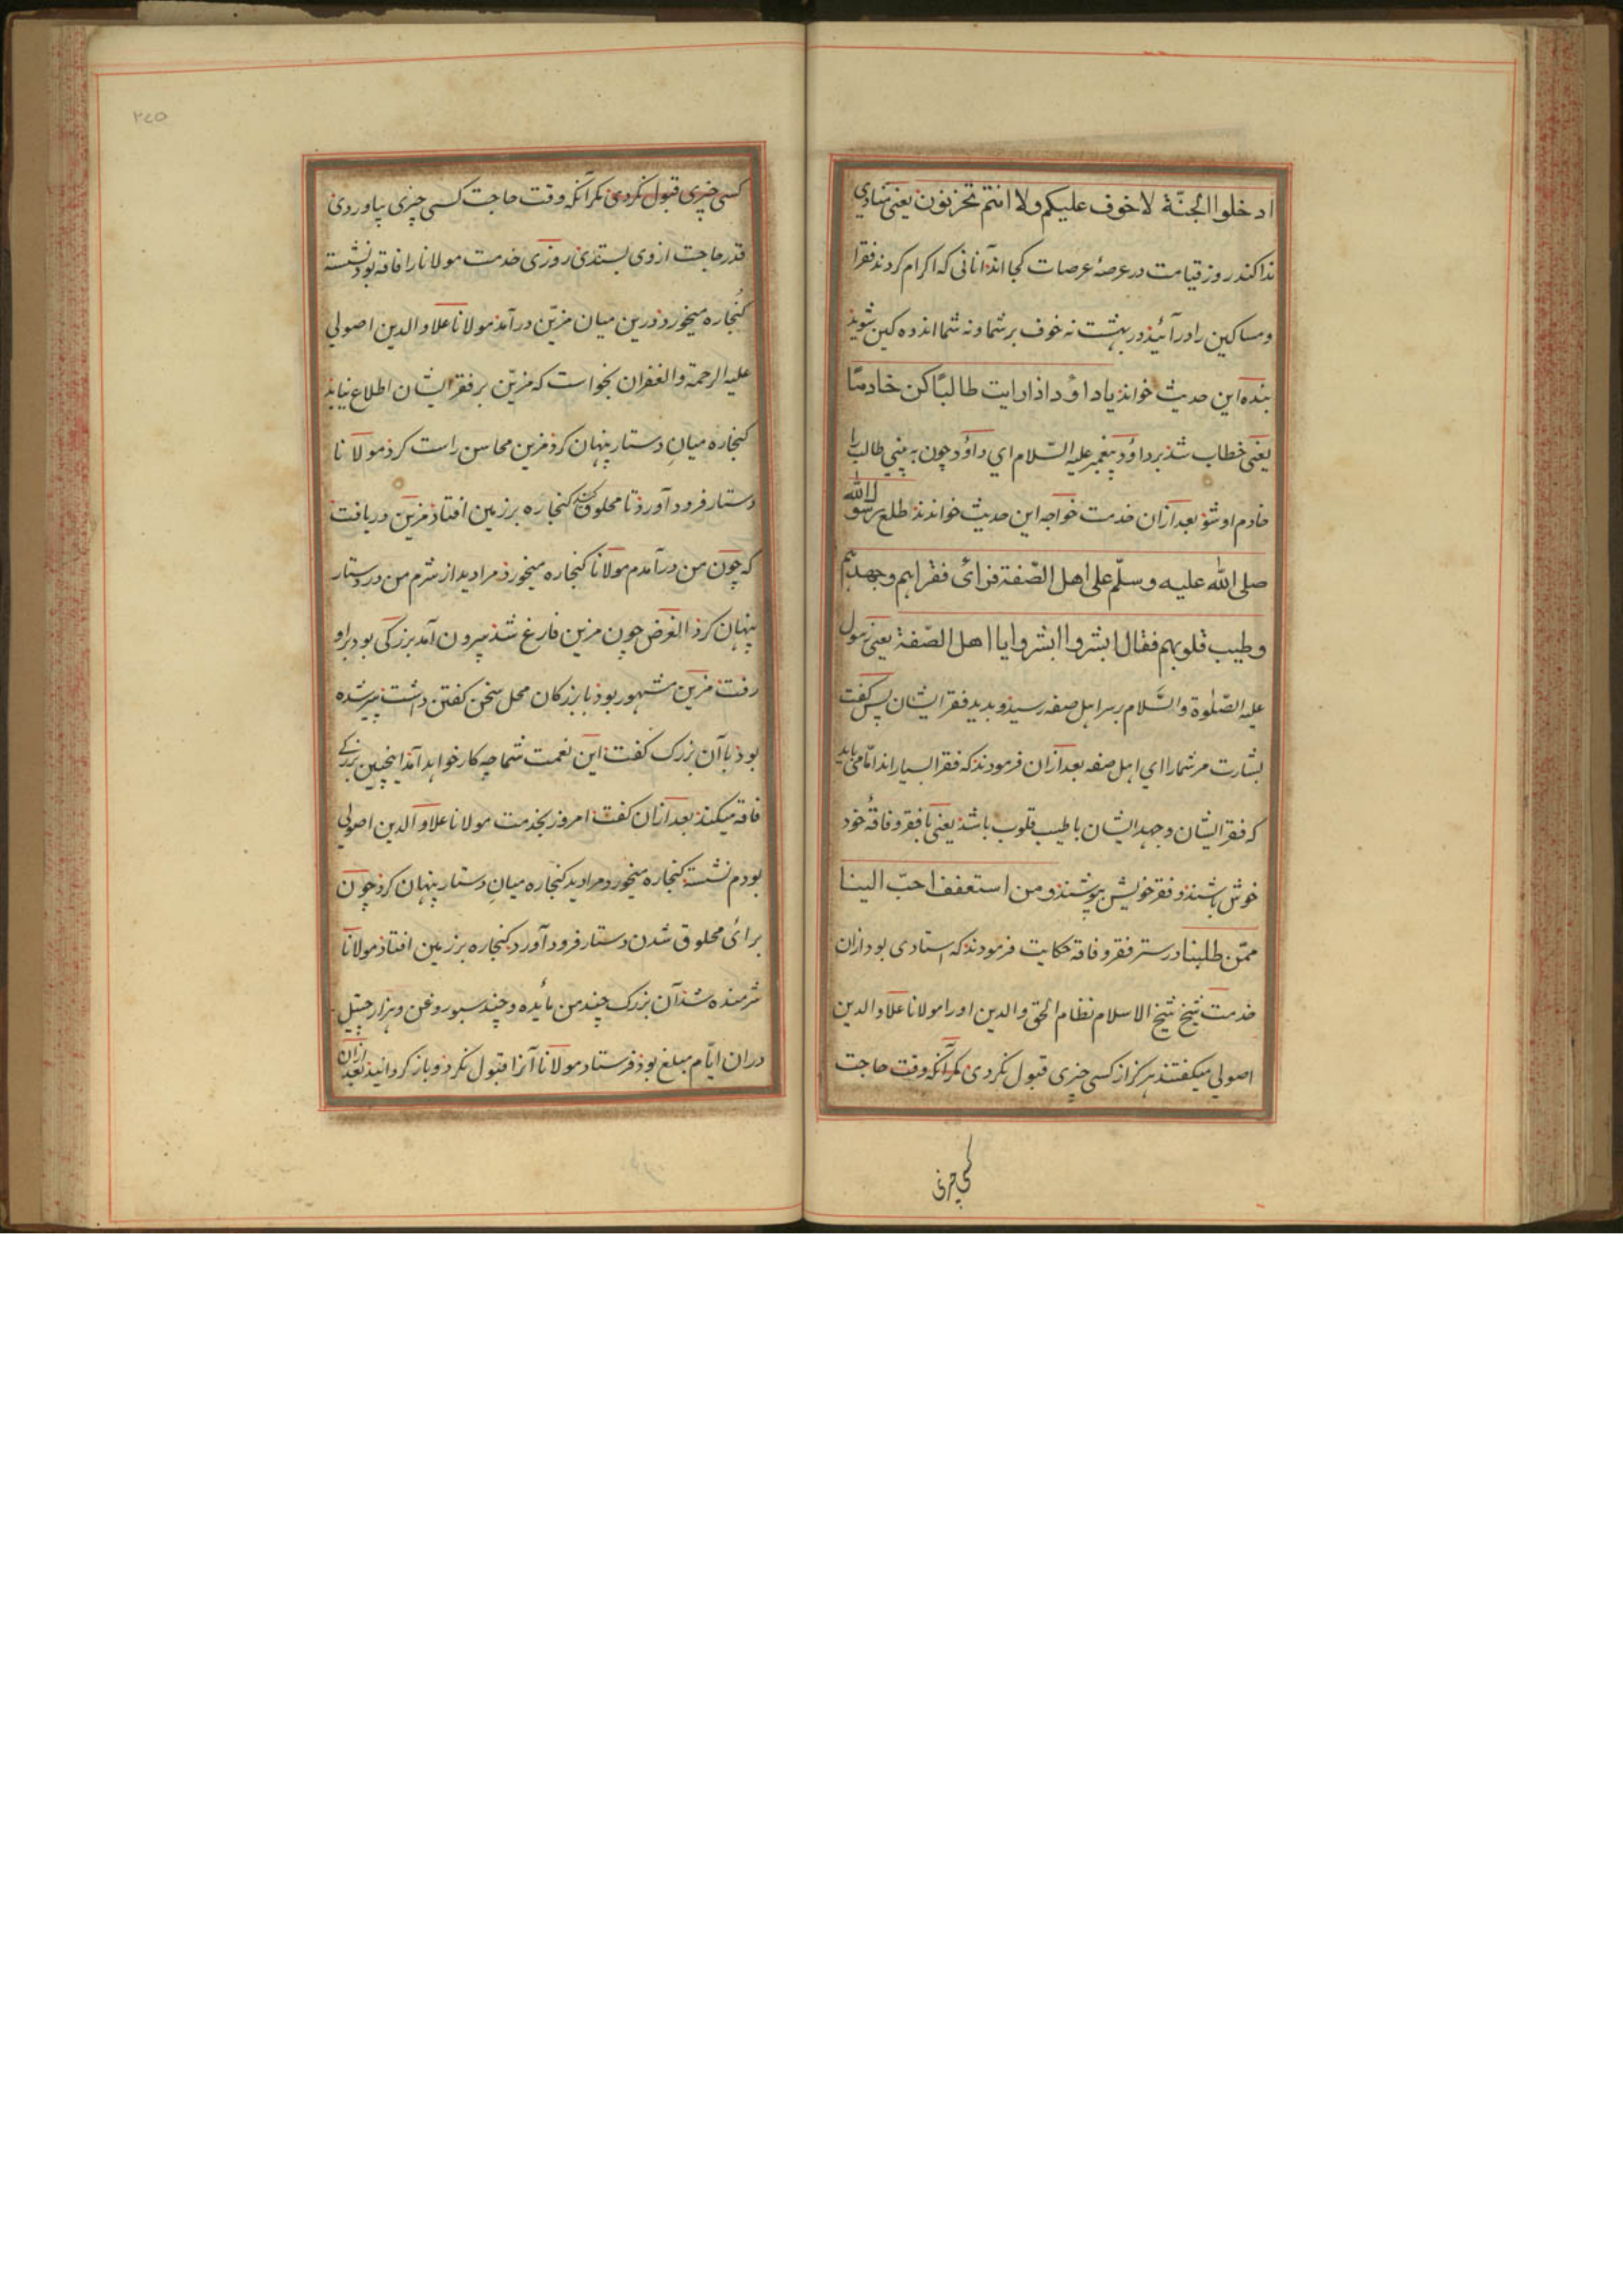 ادخلوا الجنّة لا خوف عليكم ولا انتم تحزنون یعنی منادی
ندا کند روز قیامت در عرصهٔ عرصات کجا اند آنانی که اکرام کردند فقرا
و مساکین را در آئید در بهشت نه خوف بر شما و نه شما اندوه کین شوید
بنده این حدیث خواند یا داؤد اذا رایت طالبًا کن خادمًا
یعنی خطاب شد بر داؤد پیغمبر علیه السّلام ای داؤد چون به بینی طالب را
خادم او شو بعد ازان خدمت خواجه این حدیث خواندند اطلع رسول الله
صلی الله علیه و سلّم علی اهل الصّفة فرأی فقراهم وجهدهم
وطیب قلوبهم فقال ابشروا ابشروا یا اهل الصّفة یعنی رسول
علیه الصّلوة والسَّلام بر سر اهل صفه رسید و بدید فقر ایشان پس گفت
بشارت مر شما را ای اهل صفه بعد ازان فرمودند که فقرا بسیار اند امّا می باید
که فقر ایشان و جهد ایشان با طیب قلوب باشد یعنی با فقر و فاقهٔ خود
خوش باشند و فقر خویش بپوشند و من استعفف احبّ الینا
ممّن طلبنا در ستر فقر و فاقه حکایت فرمودند که استادی بود ازان
خدمت شیخ شیخ الاسلام نظام الحق والدین اورا مولانا علاؤالدین
اصولی میکفتند هرکز از کسی چیزی قبول نکردی مکر آنکه وقت حاجت
کسی چیزی
۲۷۵
کسی چیزی قبول نکردی مکر آنکه وقت حاجت کسی چیزی بیاوردی
قدر حاجت ازوی بستدی روزی خدمت مولانا را فاقه بود نشسته
کُنجاره میخورد درین میان مزیّن درآمد مولانا علاؤالدین اصولی
علیه الرحمة والغفران نخواست که مزیّن بر فقر ایشان اطلاع یابد
کنجاره میانِ دستار پنهان کرد مزین محاسن راست کرد مولانا
دستار فرود آورد تا محلوق کند کنجاره بر زمین افتاد مزین دریافت
که چون من درآمدم مولانا کنجاره میخورد مرا دید از شرم من در دستار
پنهان کرد الغرض چون مزین فارغ شد بیرون آمد بزرکی بود براو
رفت مزین مشهور بود با بزرکان محل سخن کفتن داشت پیر شده
بود با آن بزرک کفت این نعمت شما چه کار خواهد آمد اینچنین بزرکے
فاقه میکند بعد ازان کفت امروز بخدمت مولانا علاؤالدین اصولی
بودم نشسته کنجاره میخورد مرا دید کنجاره میانِ دستار پنهان کرد چون
برائ محلوق شدن دستار فرود آورد کنجاره بر زمین افتاد مولانا
شرمنده شد آن بزرک چند من مأیده و چند سبو روغن و هزار جیتل
دران ایّام مبلغ بود فرستاد مولانا آنرا قبول نکرد و باز کردانید بعد ازان